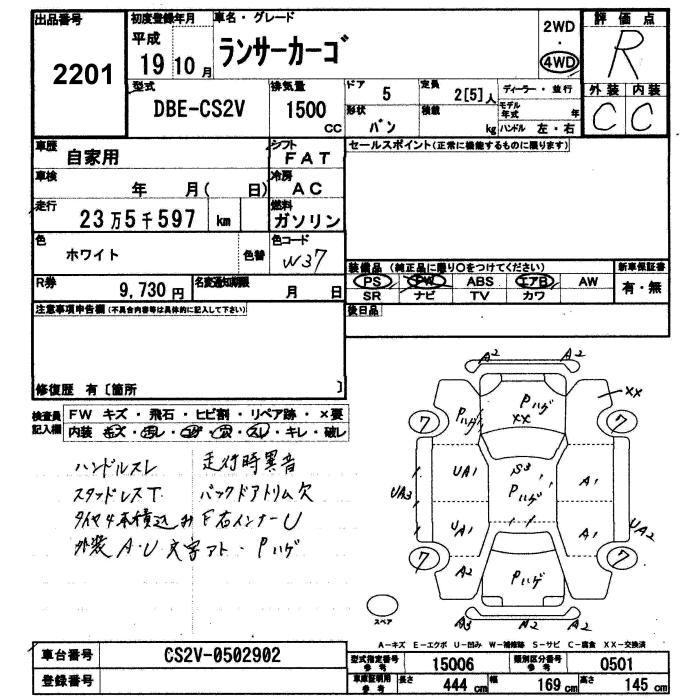 出品番号
2201
初度登録年月
平成
19 10 月
車名・グレード
ランサーカーゴ
2WD
・
4WD
評価点
R
外装 内装
C C
型式
DBE-CS2V
排気量
1500
CC
ドア
5
形状
バン
定員
2[5]人
積載
kg
ディーラー・並行
モデル年式 年
ハンドル 左・右
車歴
自家用
シフト
FAT
車検
年 月( 日)
冷房
AC
走行
23万5千597 km
燃料
ガソリン
色
ホワイト
色替
色コード
W37
R券
9,730 円
名変通知期限
月 日
セールスポイント(正常に機能するものに限ります)
装備品 (純正品に限り○をつけてください)
PS PW ABS エアB AW
SR ナビ TV カワ
新車保証書
有・無
後日品
注意事項申告欄(不具合内容等は具体的に記入して下さい)
修復歴 有〔箇所 〕
検査員記入欄
FW キズ・飛石・ヒビ割・リペア跡・×要
内装 キズ・汚レ・コゲ・穴・スレ・キレ・破レ
ハンドルスレ 走行時異音
スタッドレスT. バックドアトリム欠
タイヤ4本積込み F右インナーU
外装A・U 文字アト・Pハゲ
A2 A2
Pハゲ
XX
Pハゲ
XX
7 7
UA1 S3 1 A1
Pハゲ
UA3
UA1 A1
UA2
A2
Pハゲ
7 7
A3 A2
スペア
A-キズ E-エクボ U-凹み W-補修跡 S-サビ C-腐食 XX-交換済
車台番号
CS2V-0502902
登録番号
型式指定番号 参考
15006
類別区分番号 参考
0501
車庫証明用 参考
長さ 444 cm 幅 169 cm 高さ 145 cm